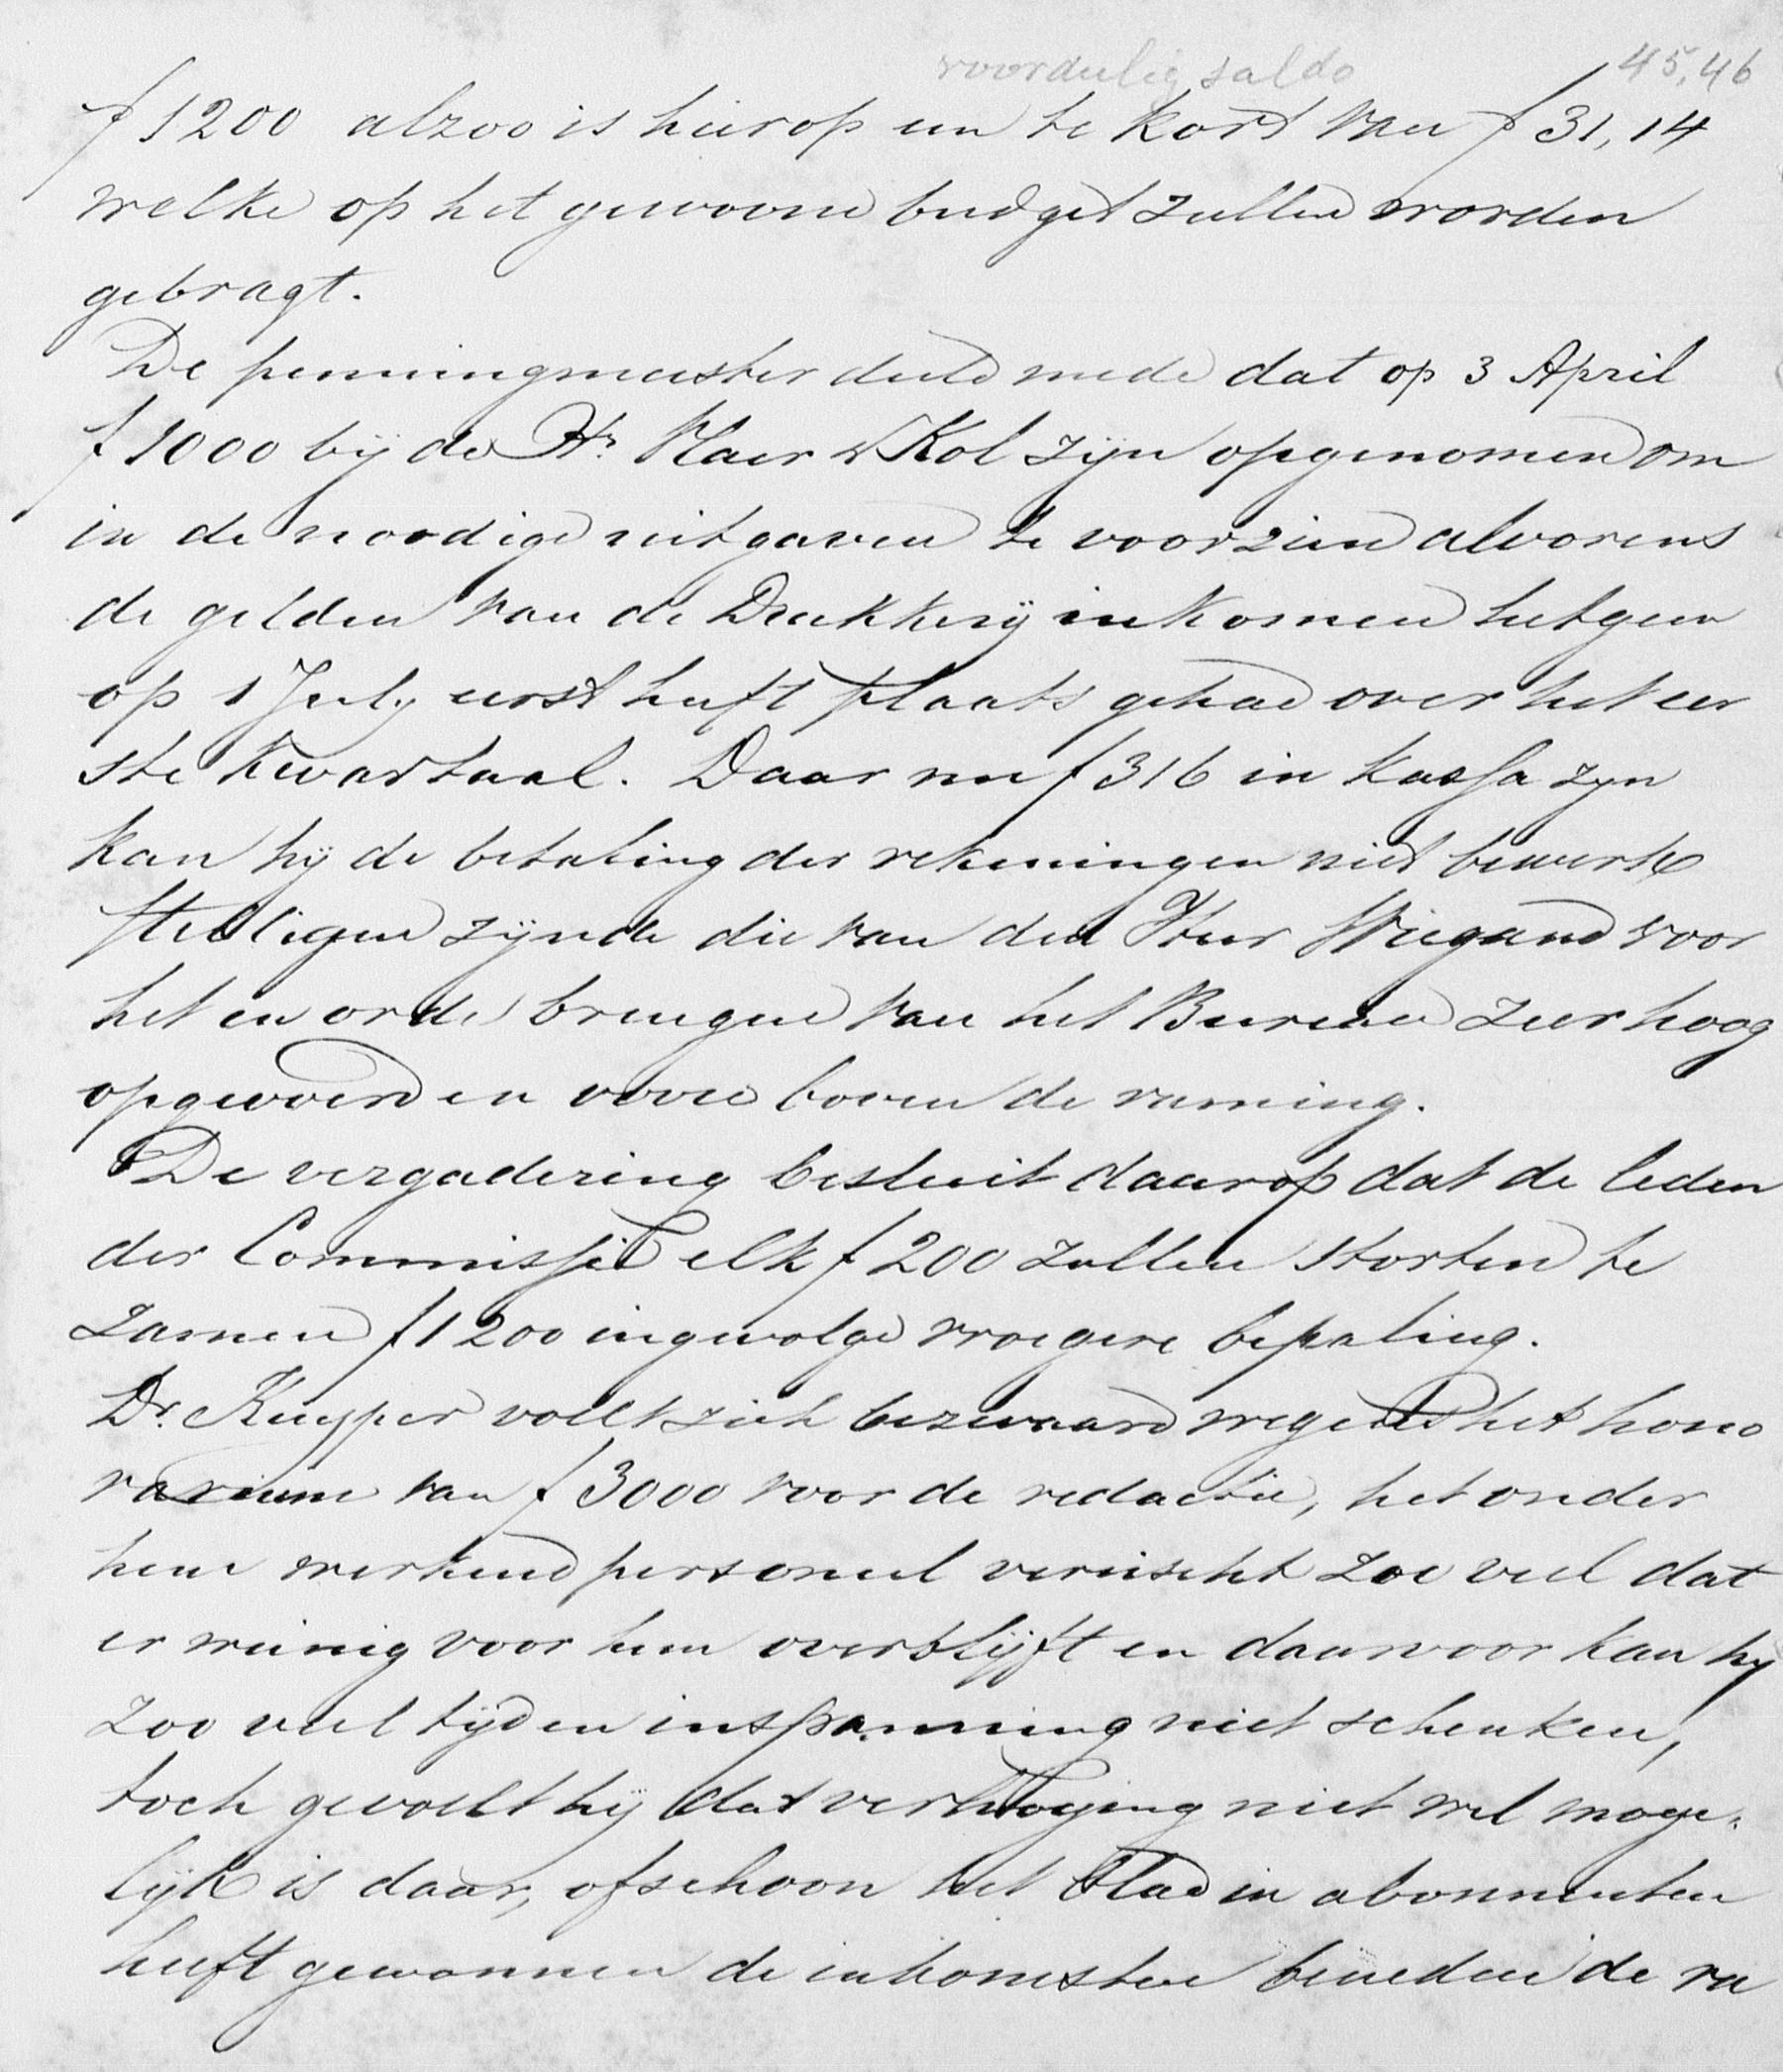 voordeelig saldo 45,46
f 1200 alzoo is hierop een te kort van f 31,14
welke op het gewoone budget zullen worden
gebragt.
De penningmeester deeld mede dat op 3 April
f 1000 bij de Hr. Vlaer & Kol zijn opgenomen om
in de noodige uitgaven te voorzien alvorens
de gelden van de Drukkerij inkomen hetgeen
op 1 July eerst heeft plaats gehad over het eer
ste kwartaal. Daar nu f 316 in kassa zyn
kan hij de betaling der rekeningen niet bewerk
stelligen zijnde die van den Heer Wiegand voor
het en orde brengen van het Bureau zeer hoog
opgevoerd en verre boven de raming.
De vergadering besluit daarop dat de leden
der Commissie elk f 200 zullen storten te
zamen f 1200 ingevolge vroegere bepaling.
Dr. Kuyper voelt zich bezwaard wegens het hono
rarium van f 3000 voor de redactie, het onder
hem werkend personeel vereischt zoo veel dat
er weinig voor hem overblijft en daarvoor kan hij
zoo veel tijd en inspanning niet schenken,
toch gevoelt hij dat verhooging niet wel moge-
lijk is daar, ofschoon het blad in abonnenten
heeft gewonnen de inkomsten beneden de ra